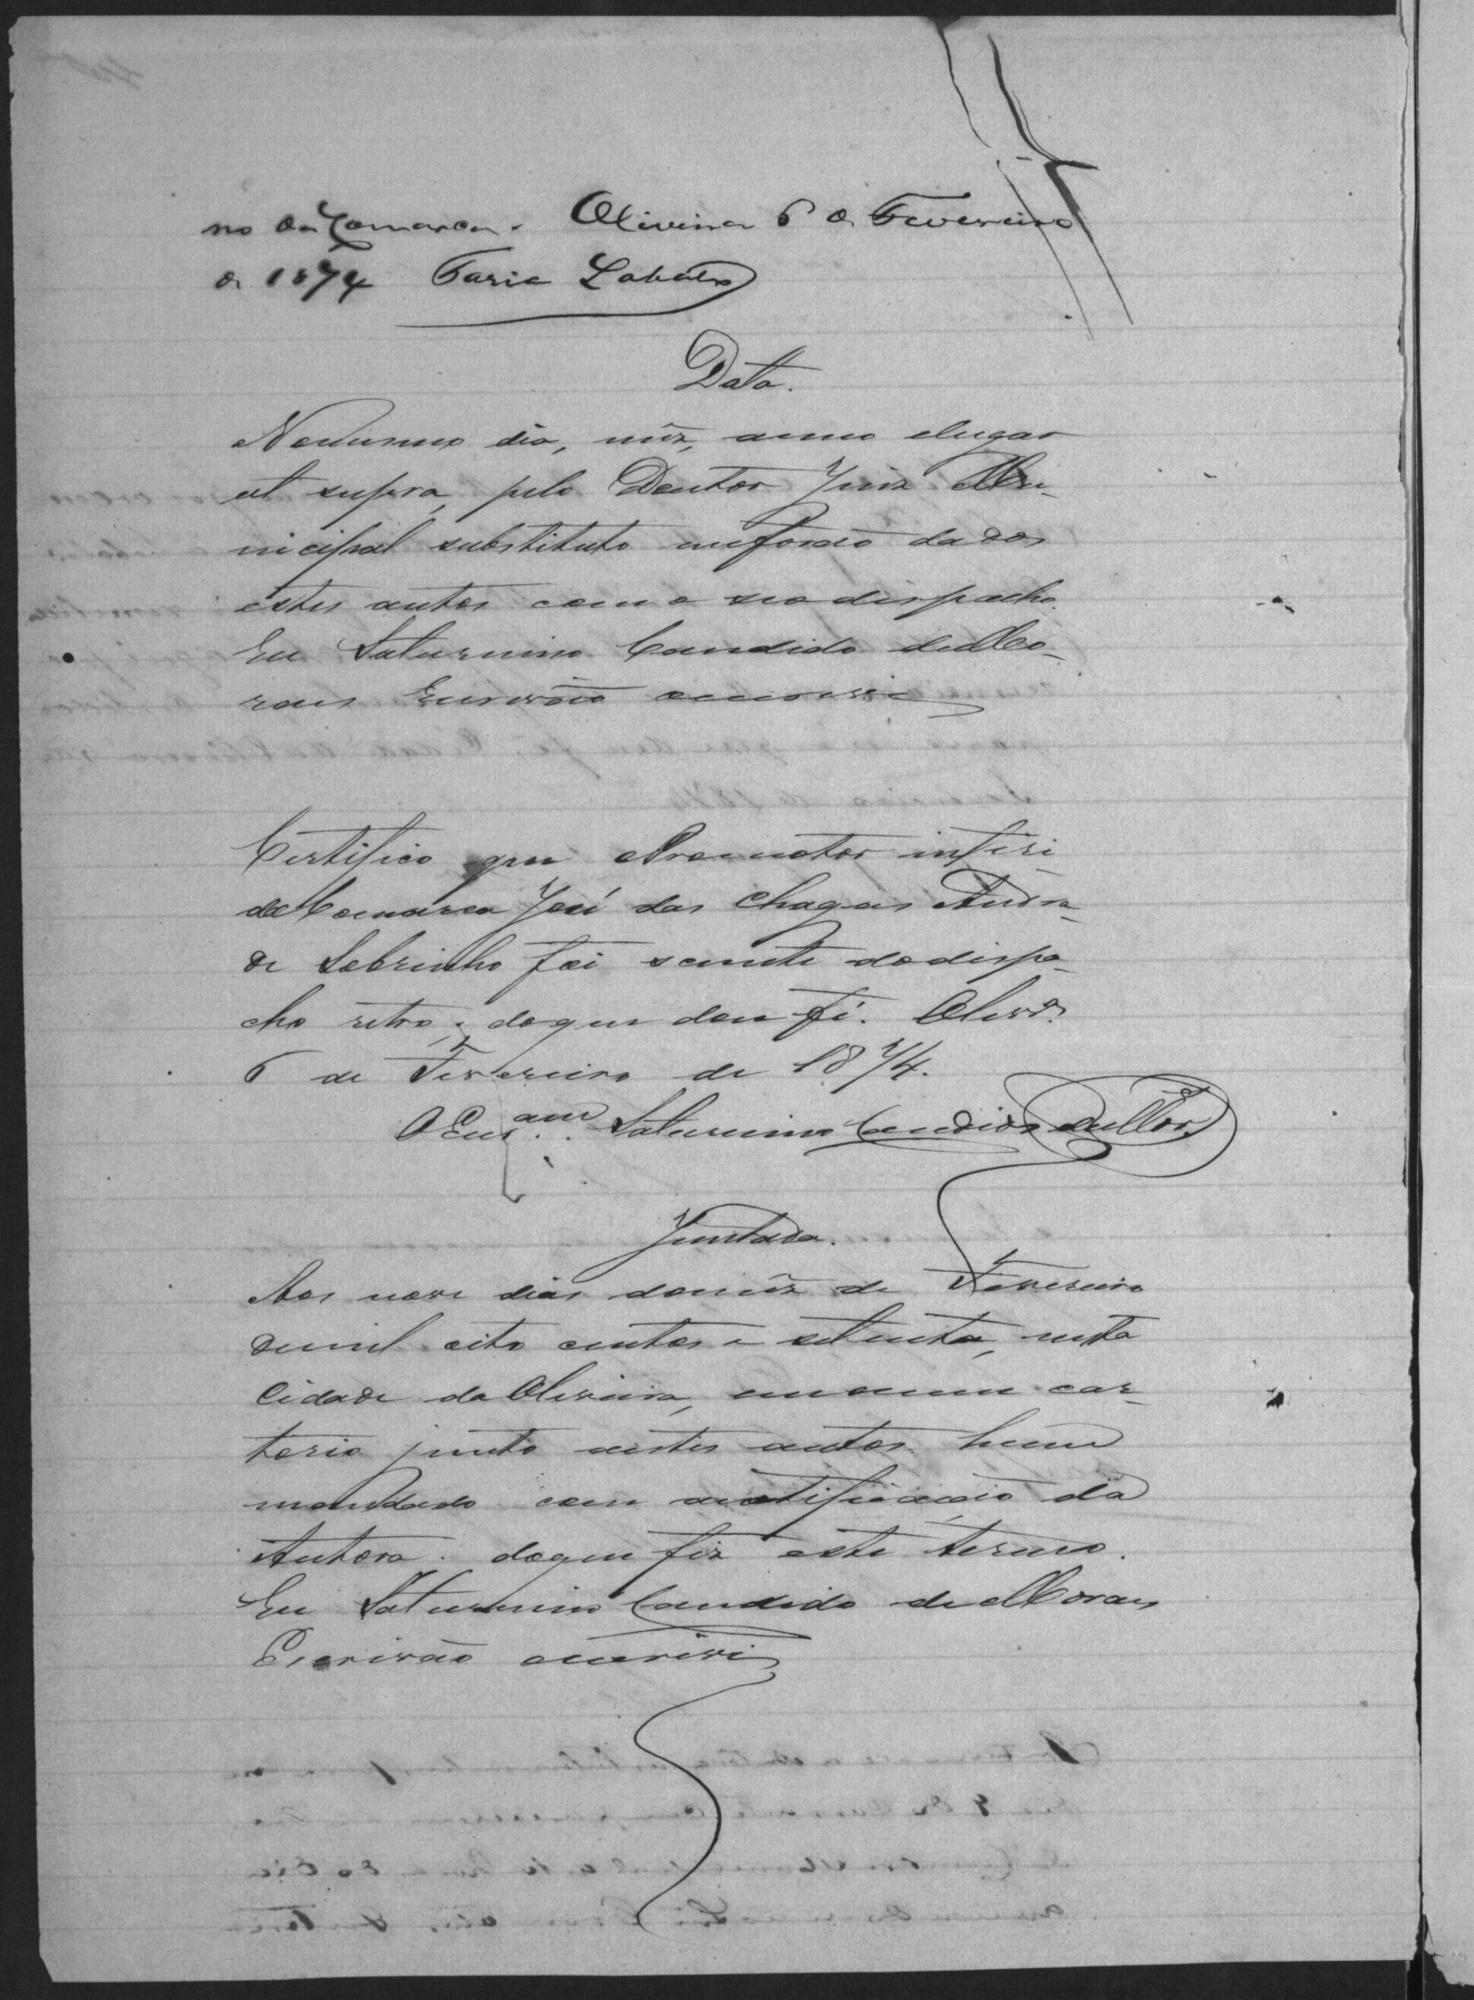 no da Comarca. Oliveira 6 de Fevereiro
de 1874 Faria Lobato
Data.
No mesmo dia, mez, anno elugar
ut supra, pelo Doutor Juiz Mu-
nicipal substituto meforão dados
estes autos com o seo dispacho.
Eu Saturnino Candido de Mo-
raes Escrivão o escrevi
Certifico que o Promotor interi
da Comarca José das Chagas Andra-
de Sobrinho foi sciente do dispa-
cho retro; doque dou fé. Olivrª
6 de Fevereiro de 1874.
O Escram Saturnino Candido de Mor.
Juntada.
Aos nove dias domez de Fevereiro
demil oito centos e setenta, nesta
Cidade da Oliveira, em meu car-
torio junto aestes autos hum
mandado com a notificação da
Autora. doque fiz este termo.
Eu Saturnino Candido de Moraes
Escrivão o escrevi